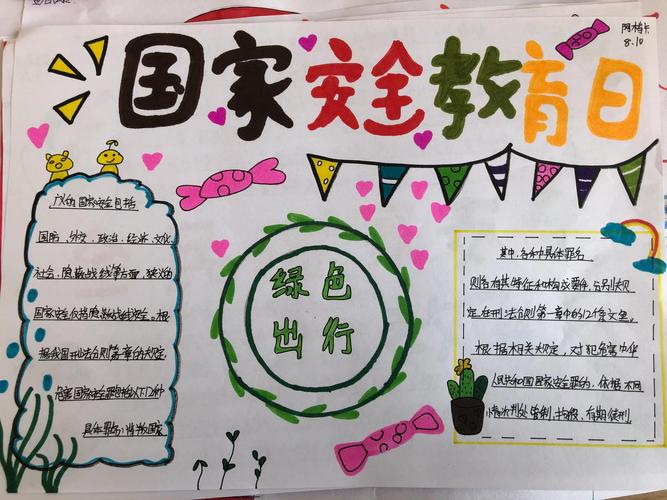 国家安全教育日
阿梅卡
8.10
广义的国家安全包括
国防、外交、政治、经济、文化、
社会、隐蔽战线等方面,狭义的
国家安全仅指隐蔽战线安全。根
据我国刑法分则第一章的规定,
危害国家安全罪包括以下12种
具体罪名:背叛国家
绿色
出行
其中,各种具体罪名
则各有其特征和构成要件,分别规
定在刑法分则第一章中的12条文里。
根据相关规定,对犯危害中华
人民共和国国家安全罪的,依据不同
情况判处管制、拘役、有期徒刑